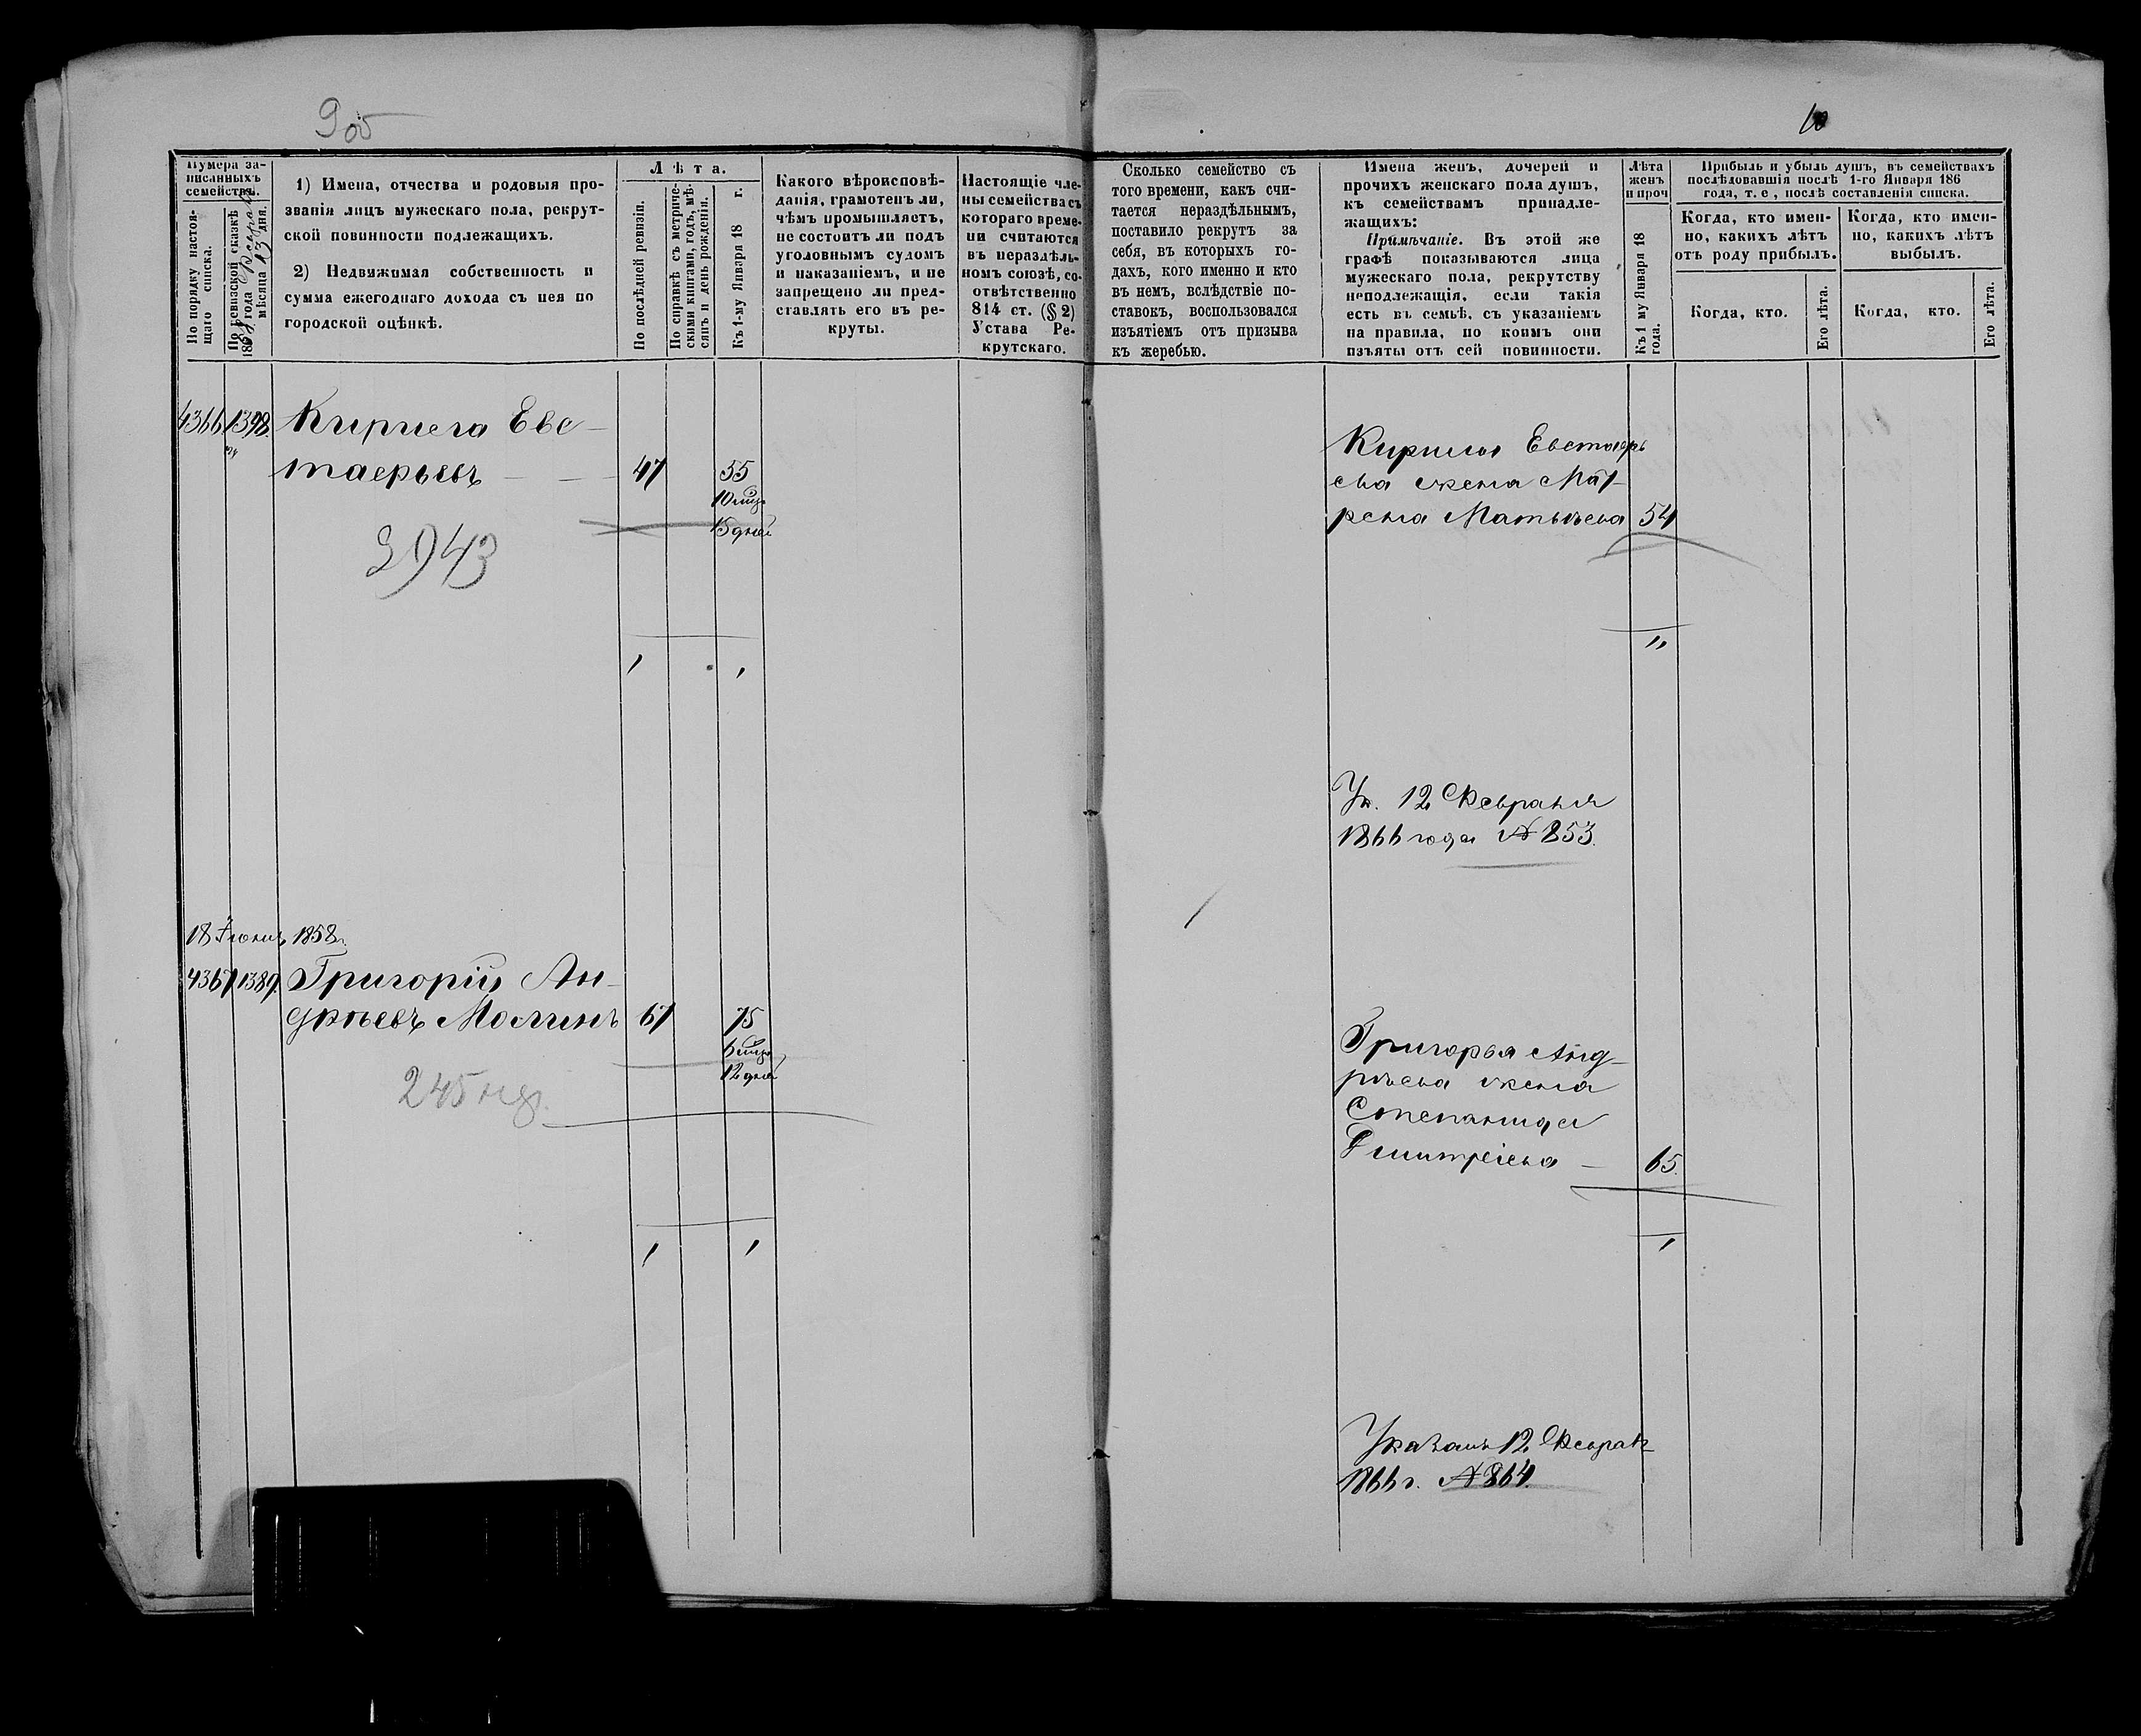 9 об
10
Нумера за-
писанныхъ
семействъ.
По порядку настоя-
щаго списка.
По ревизской сказкѣ
1858 года Февраля
мѣсяца 13 дня.
1) Имена, отчества и родовыя про-
званія лицъ мужескаго пола, рекрут-
ской повинности подлежащихъ.
2) Недвижимая собственность и
сумма ежегоднаго дохода съ нея по
городской оцѣнкѣ.
Лѣта.
По послѣдней ревизіи.
По справкѣ съ метриче-
скими книгами, годъ, мѣ-
сяцъ и день рожденія.
Къ 1-му Января 18 г.
Какого вѣроисповѣ-
данія, грамотенъ ли,
чѣмъ промышляетъ,
не состоитъ ли подъ
уголовнымъ судомъ
и наказаніемъ, и не
запрещено ли пред-
ставлять его въ ре-
круты.
Настоящіе чле-
ны семейства съ
котораго време-
ни считаются
въ нераздѣль-
номъ союзѣ, со-
отвѣтственно
814 ст. (§ 2)
Устава Ре-
крутскаго.
Сколько семейство съ
того времени, какъ счи-
тается нераздѣльнымъ,
поставило рекрутъ за
себя, въ которыхъ го-
дахъ, кого именно и кто
въ немъ, вслѣдствіе по-
ставокъ, воспользовался
изъятіемъ отъ призыва
къ жеребью.
Имена женъ, дочерей и
прочихъ женскаго пола душъ,
къ семействамъ принадле-
жащихъ:
Примѣчаніе. Въ этой же
графѣ показываются лица
мужескаго пола, рекрутству
неподлежащія, если такія
есть въ семьѣ, съ указаніемъ
на правила, по коимъ они
изъяты отъ сей повинности.
Лѣта
женъ
и проч
Къ 1 му Января 18
года.
Прибыль и убыль душъ, въ семействахъ
послѣдовавшія послѣ 1-го Января 186
года, т. е, послѣ составленія списка.
Когда, кто имен-
но, какихъ лѣтъ
отъ роду прибылъ.
Когда, кто имен-
но, какихъ лѣтъ
выбылъ.
Когда, кто.
Его лѣта.
Когда, кто.
Его лѣта.
4366 1398. Кирила Евс-
тафьевъ 47 55
10 мцъ
15 дней
3943
1 1
Кирилы Евстафь
ева жена Мат-
рена Матвѣева 54
"
Ук. 12 Февраля
1866 года № 853.
18 Іюня 1858г.
4367 1389. Григорій Ан-
дрѣевъ Молинъ 67 75
6 мцъ
12 дней
245 нд.
1 1
Григорья Анд-
рѣева жена
Степанида
Дмитріева 65.
1
Указамъ 12 Феврал
1866 г. № 864.